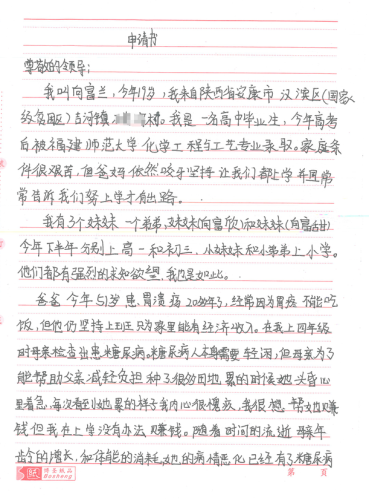 申请书
尊敬的领导:
我叫向富兰,今年19岁,我来自陕西省安康市汉滨区(国家
级贫困区)吉河镇 村。我是一名高中毕业生,今年高考
白被福建师范大学化学工程与工艺专业录取。家庭条
件很艰苦,但爸妈依然咬牙坚持让我们都上学并且常
常告诉我们努上学才有出路。
我有3个妹妹一个弟弟,妹妹(向富欣)和妹妹(向富
今年下半年分别上高一和初三、小妹妹和小弟弟上小学。
他们都有强烈的求知欲想,我也是如此。
爸爸今年51岁患胃溃疡20多年了,经常因为胃疼不能吃
饭,但他仍坚持上班只为家里能有经济收入。在我上四年级
时母亲检查出患糖尿病。糖尿病人本身需要轻闲,但母亲为了
能帮助父亲减轻负担种了很多田地累的时候她头昏心
里着急,每次看到她累的样子我内心很愧疚,我很想帮她赚
钱但我在上学没有办法赚钱。随着时间的流逝母亲年
龄的增长,和体能的消耗,她的病情恶化已经有了糖尿病
博主纸品
Bosheng
第 页